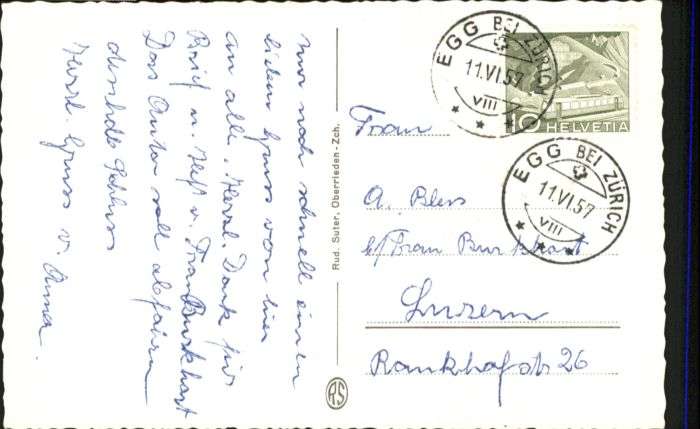 nur noch schnell einen
lieben Gruss von hier
an alle. Herzl. Dank für
Brief u. Heft v. Frau Burkhart
Das Auto soll abfahren
deshalb Schluss
Herzl. Gruss v. Anna.
Rud. Suter, Oberrieden-Zch.
RS
EGG BEI ZÜRICH
11.VI.57
VIII
10 HELVETIA
EGG BEI ZÜRICH
11.VI.57
VIII
Frau
A.
b/Frau Burkhart
Luzern
26